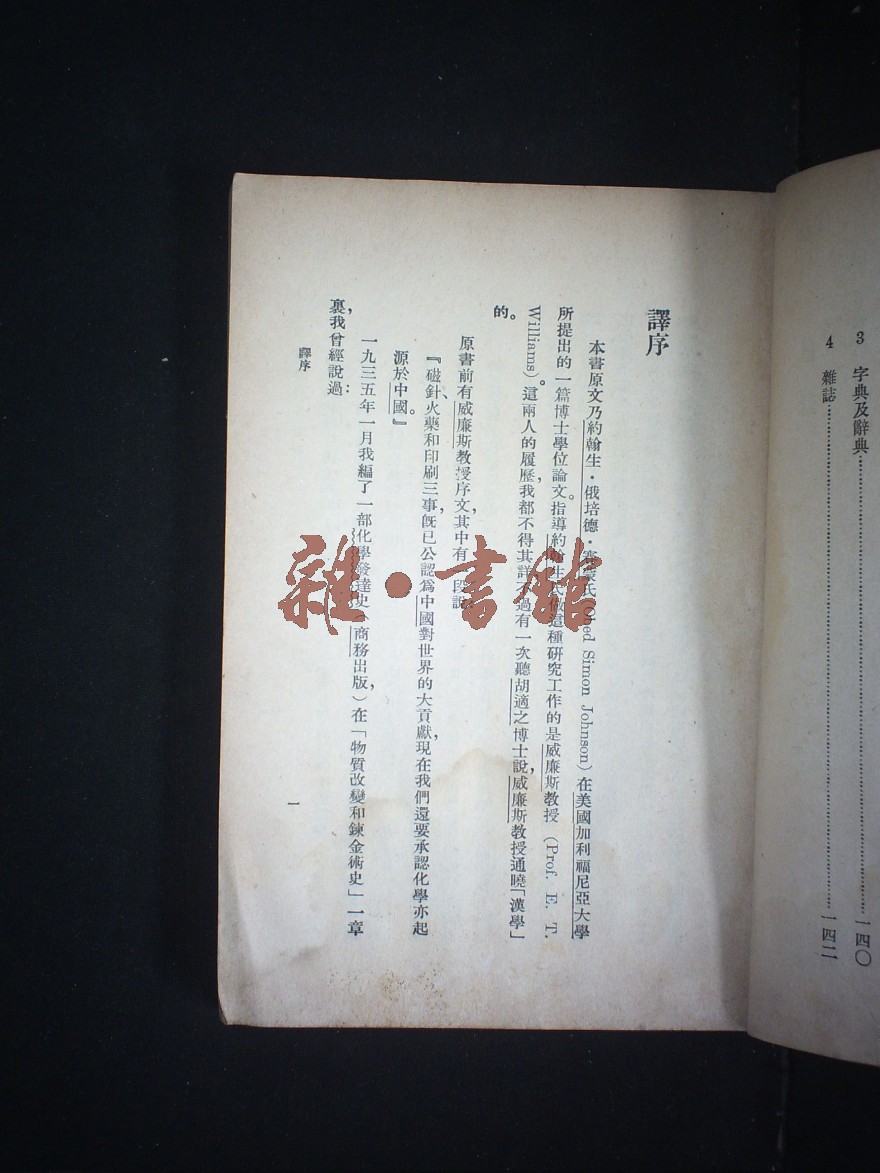 3　字典及辭典……………………一四〇
4　雜誌……………………一四二
譯序
本書原文乃約翰生・俄培德・賽蒙氏（Obed Simon Johnson）在美國加利福尼亞大學
所提出的一篇博士學位論文。指導約翰生氏做這種研究工作的是威廉斯教授（Prof. E. T.
Williams）。這兩人的履歷，我都不得其詳，不過有一次聽胡適之博士說，威廉斯教授通曉「漢學」
的。
原書前有威廉斯教授序文，其中有一段說：
『磁針、火藥和印刷三事，旣已公認爲中國對世界的大貢獻，現在我們還要承認化學亦起
源於中國。』
一九三五年一月我編了一部化學發達史（商務出版，）在「物質改變和鍊金術史」一章
裏，我曾經說過：
譯序
一
雜・書館